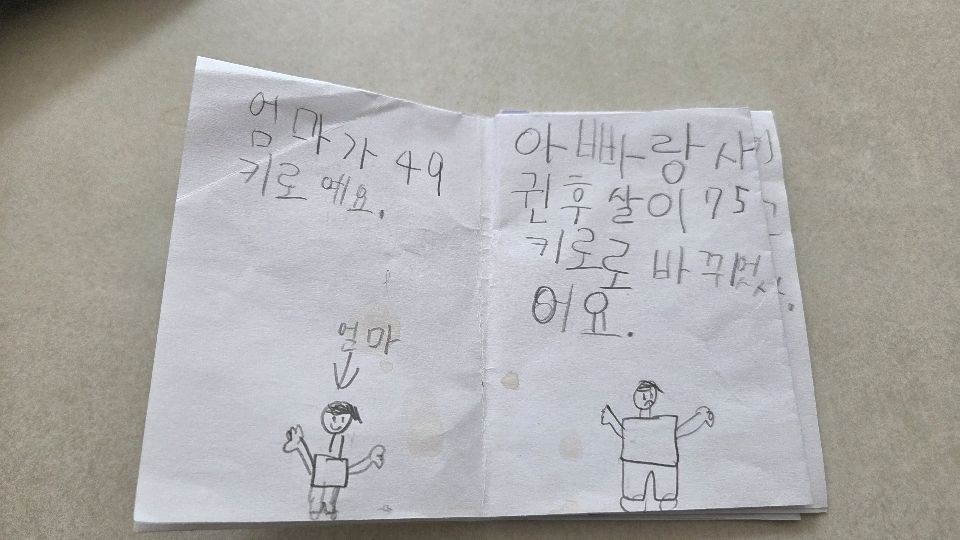 엄마가 49
키로예요.
엄마
아빠랑 사
귄 후 살이 75
키로로 바뀌었
어요.